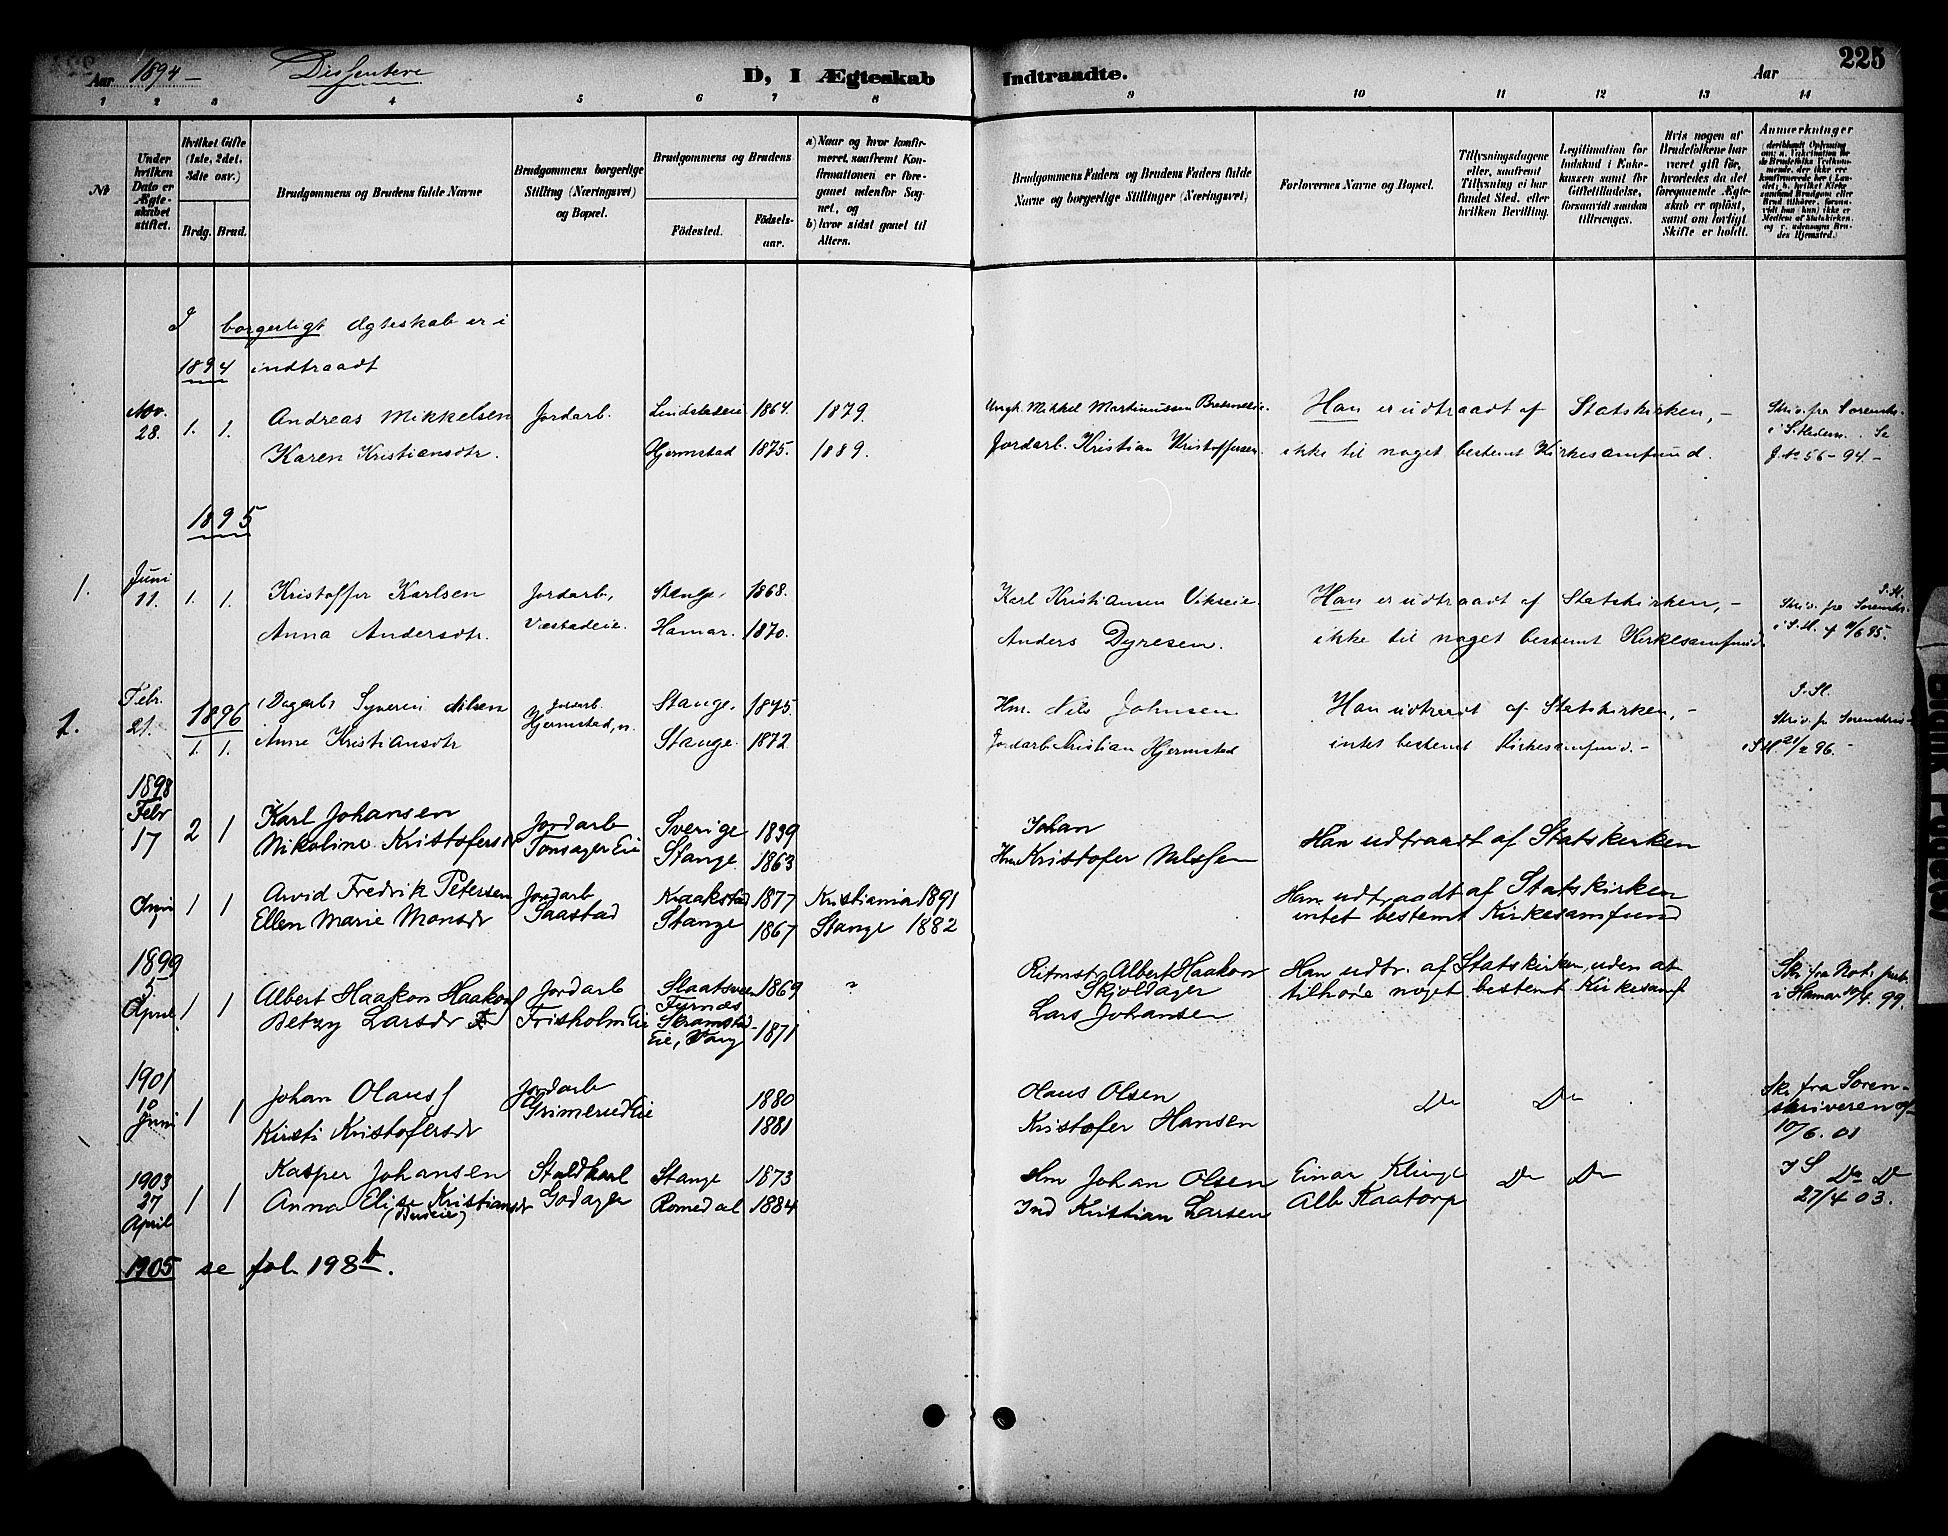 225
Aar 1894 –
Dissentere
D, I Ægteskab
Indtraadte.
Aar
1 2 3 4 5 6 7 8 9 10 11 12 13 14
No
Under hvilken Dato er Ægteskabet stiftet.
Hvilket Gifte (1ste, 2det, 3die osv.)
Brdg. Brud.
Brudgommens og Brudens fulde Navne
Brudgommens borgerlige Stilling (Næringsvei) og Bopæl.
Brudgommens og Brudens
Fødested.
Fødselsaar.
a) Naar og hvor konfirmeret, saafremt Konfirmationen er foregaaet udenfor Sognet, og
b) hvor sidst gaaet til Alters.
Brudgommens Faders og Brudens Faders fulde Navne og borgerlige Stillinger (Næringsvei)
Forlovernes Navne og Bopæl.
Tillysningsdagene eller, saafremt Tillysning ei har fundet Sted, efter hvilken Bevilling.
Legitimation for Indskud i Enkekassen samt for Giftetilladelse, forsaavidt saadan tiltrænges.
Hvis nogen af Brudefolkene har været gift før, hvorledes da det foregaaende Ægteskab er opløst, samt om lovligt Skifte er holdt.
Anmærkninger
I borgerligt Ægteskab er i
1894 indtraadt
Nov. 28. 1. 1. Andreas Mikkelsen Jordarb. 1864. 1879. Ungk. Mikkel Martinussen Han er udtraadt af Statskirken, –
Karen Kristiansdtr. Hjermstad 1875. 1889. Jordarb. Kristian Kristoffersen ikke til noget bestemt Kirkesamfund. J. No 56 – 94. –
1895
1. Juni 11. 1. 1. Kristoffer Karlsen Jordarb, Stange. 1868. Karl Kristiansen Vikseie. Han er udtraadt af Statskirken, –
Anna Andersdtr. Væstadeie. Hamar. 1870. Anders Dyresen. ikke til noget bestemt Kirkesamfund.
1. Febr. 21. 1896 1. 1. Syverin Nilsen Jordarb. Hjermstad, n. Stange. 1875. Hm. Nils Johnsen Han udtraadt af Statskirken, –
Anne Kristiansdtr Stange. 1872 Jordarb. Kristian Hjermstad intet bestemt Kirkesamfund. – 21/2 96. –
1898
Febr 17 2 1 Karl Johansen Jordarb Sverige 1839 Johan Han udtraadt af Statskirken
Nikoline Kristofersdr Tonsager Eie Stange 1863 Hm Kristofer Nilssen
Juni 1 1 Arvid Fredrik Petersen Jordarb Kraakstad 1877 Kristiania 1891 Han udtraadt af Statskirken
Ellen Marie Monsdr Saastad Stange 1867 Stange 1882 intet bestemt Kirkesamfund
1899
5 April 1 1 Albert Haakon Haakons Jordarb 1869 " Ritmstr Albert Haakon Skjoldager Han udtr. af Statskirken, uden at tilhøre noget bestemt Kirkesamf Skr fra Not. pub. i Hamar 10/4. 99.
Betzy Larsdr Frisholm Eie Furnæs Skramstad Eie, Vang 1871 Lars Johansen
1901
10 Juni 1 1 Johan Olauss Jordarb Grimerud Eie 1880 Olaus Olsen Do Do Skr fra Sorenskriveren af 10/6. 01
Kirsti Kristofersdr 1881 Kristofer Hansen
1903
27 April 1 1 Kasper Johansen Staldkarl Stange 1873 Hm Johan Olsen Einar Klinge Do Do Do Do
Anna Elise Kristiansdr Godager Romedal 1884 Ind Kristian Larsen Alb Kaatorp 27/4 03.
1905 se fol 198 b.